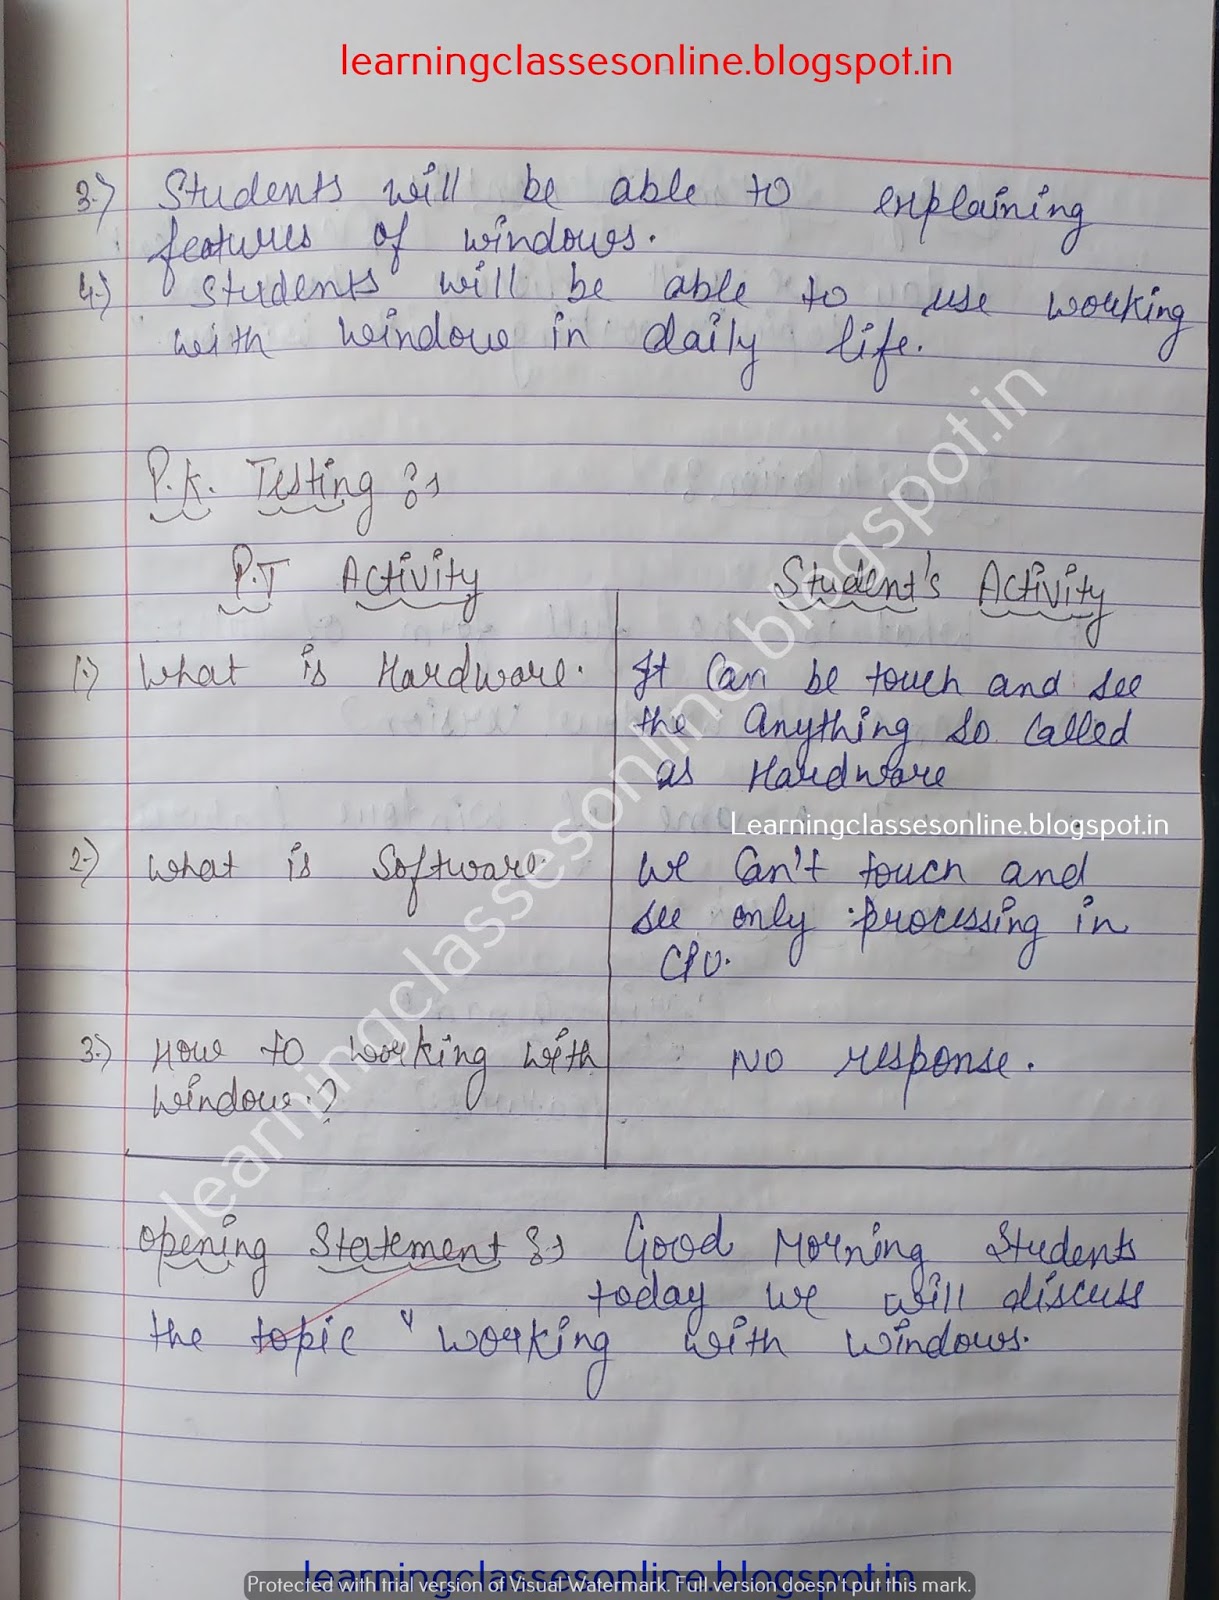 learningclassesonline.blogspot.in
3.) Students will be able to explaining
features of windows.
4.) Students will be able to use working
with window in daily life.
P.K. Testing :→
P.T Activity
Student's Activity
1.) What is Hardware.
It can be touch and see
the anything so called
as Hardware
Learningclassesonline.blogspot.in
2.) What is Software.
We can't touch and
see only processing in
CPU.
3.) How to working with
window.?
No response.
Opening Statement :→ Good Morning Students
today we will discuss
the topic " working with windows.
learningclassesonline.blogspot.in
learningclassesonline.blogspot.in
Protected with trial version of Visual Watermark. Full version doesn't put this mark.